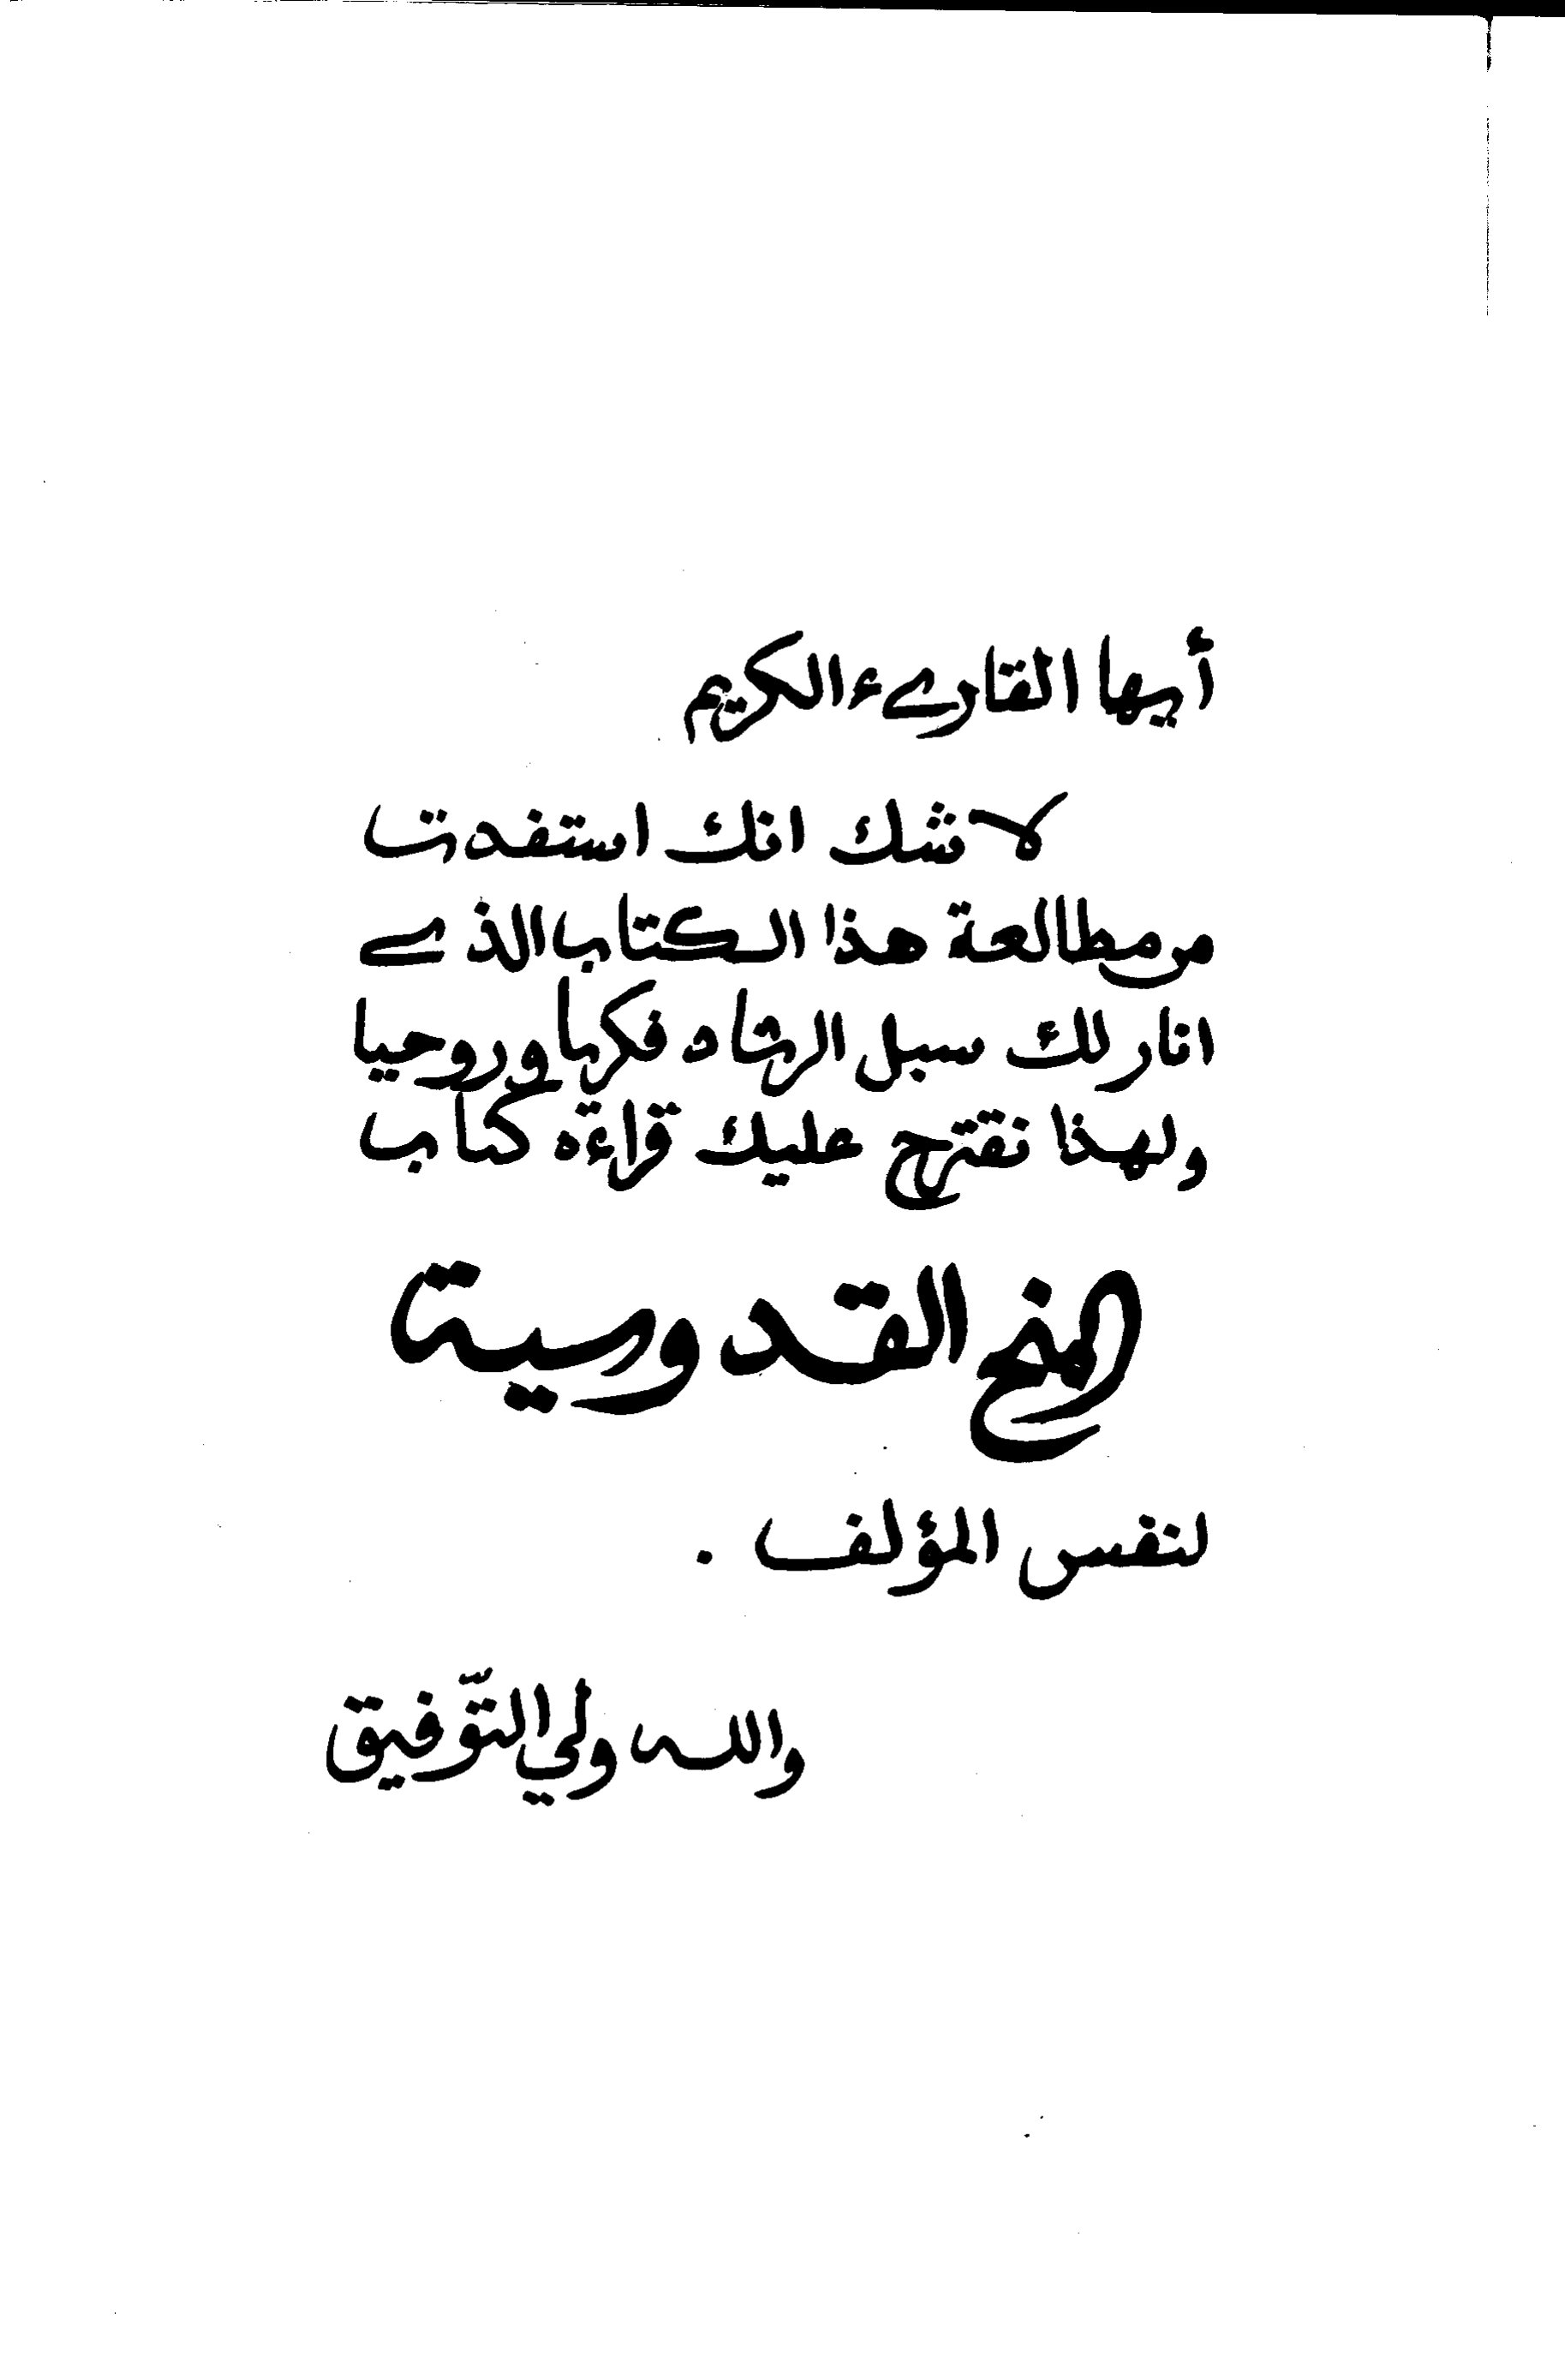 أيها القارىء الكريم
لا شك انك استفدت
من مطالعة هذا الكتاب الذي
انار لك سبل الرشاد فكريا وروحيا
ولهذا نقترح عليك قراءة كتاب
المنح القدوسية
لنفس المؤلف .
والله ولي التّوفيق